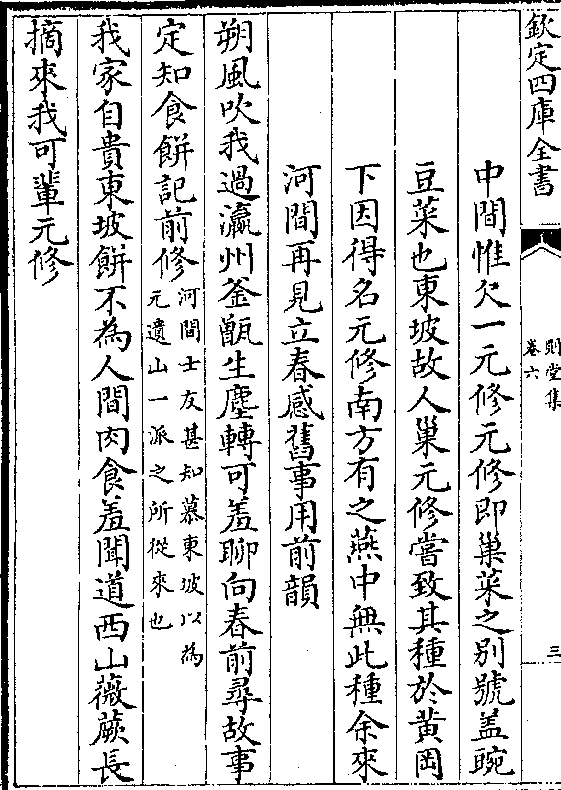 欽定四庫全書
則堂集
卷六
三
中間惟欠一元修元修即巢菜之別號盖豌
豆菜也東坡故人巢元修嘗致其種於黃岡
下因得名元修南方有之燕中無此種余來
河間再見立春感舊事用前韻
朔風吹我過瀛州釜甑生塵轉可羞聊向春前尋故事
定知食餅記前修河間士友甚知慕東坡以為
元遺山一派之所從來也
我家自貴東坡餅不為人間肉食羞聞道西山薇蕨長
摘來我可輩元修